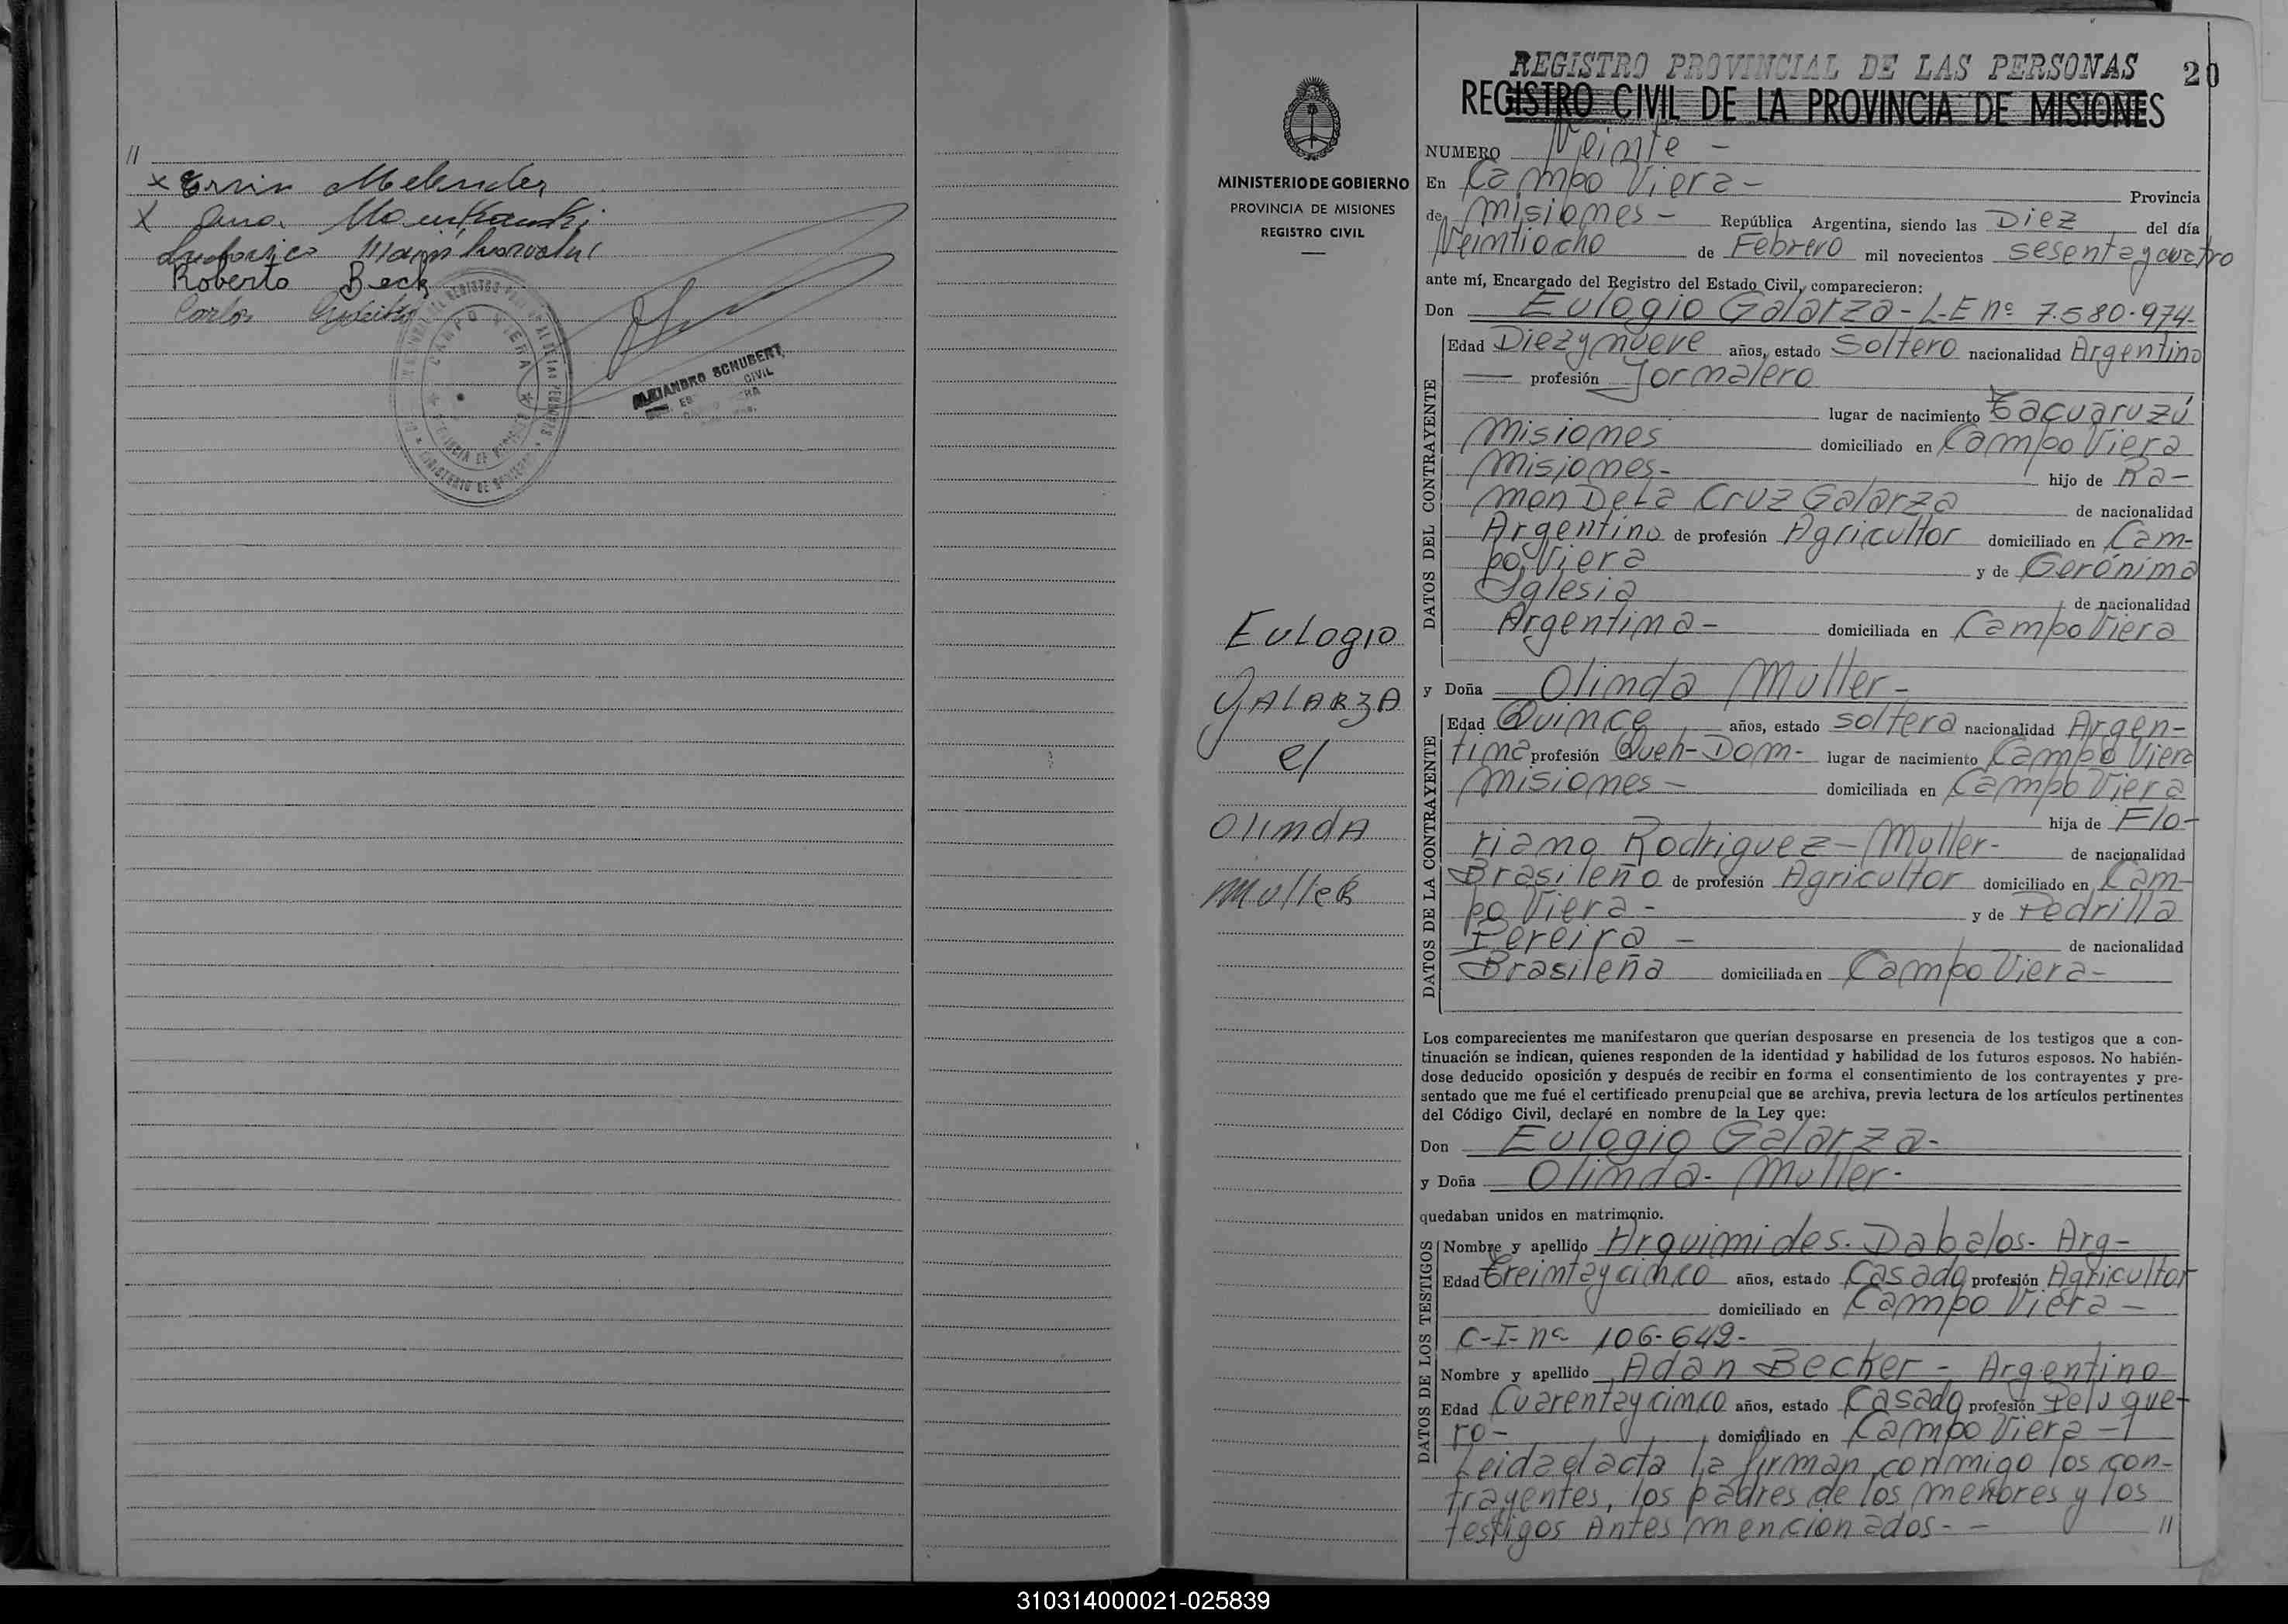 //
x Ervin Melender
x Ana
Ludovico
Roberto Beck
Carlos
CAMPO VIERA
ALEJANDRO SCHUBERT
CIVIL
MINISTERIO DE GOBIERNO
PROVINCIA DE MISIONES
REGISTRO CIVIL
Eulogio
GALARZA
el
Olinda
Muller
REGISTRO PROVINCIAL DE LAS PERSONAS 20
REGISTRO CIVIL DE LA PROVINCIA DE MISIONES
NUMERO Veinte -
En Campo Viera - Provincia
de Misiones - República Argentina, siendo las Diez del día
Veintiocho de Febrero mil novecientos sesenta y cuatro
ante mí, Encargado del Registro del Estado Civil, comparecieron:
Don Eulogio Galarza - L-E nº 7.580.974-
DATOS DEL CONTRAYENTE
Edad Diez y nueve años, estado Soltero nacionalidad Argentino
profesión Jornalero
lugar de nacimiento Tacuaruzú
Misiones domiciliado en Campo Viera
Misiones- hijo de Ra-
mon De La Cruz Galarza de nacionalidad
Argentino de profesión Agricultor domiciliado en Cam-
po Viera y de Gerónima
Iglesia de nacionalidad
Argentina - domiciliada en Campo Viera
y Doña Olinda Muller -
DATOS DE LA CONTRAYENTE
Edad Quince años, estado soltera nacionalidad Argen-
tina profesión Queh-Dom- lugar de nacimiento Campo Viera
Misiones - domiciliada en Campo Viera
hija de Flo-
riano Rodriguez - Muller- de nacionalidad
Brasileño de profesión Agricultor domiciliado en Cam-
po Viera - y de Pedrilla
Pereira - de nacionalidad
Brasileña domiciliada en Campo Viera-
Los comparecientes me manifestaron que querían desposarse en presencia de los testigos que a con-
tinuación se indican, quienes responden de la identidad y habilidad de los futuros esposos. No habién-
dose deducido oposición y después de recibir en forma el consentimiento de los contrayentes y pre-
sentado que me fué el certificado prenupcial que se archiva, previa lectura de los artículos pertinentes
del Código Civil, declaré en nombre de la Ley que:
Don Eulogio Galarza-
y Doña Olinda- Muller-
quedaban unidos en matrimonio.
DATOS DE LOS TESTIGOS
Nombre y apellido Arquimides. Dabalos- Arg-
Edad treinta y cinco años, estado Casado profesión Agricultor
domiciliado en Campo Viera -
C-I- nº 106-649-
Nombre y apellido Adan Becker - Argentino
Edad Cuarenta y cinco años, estado Casado profesión Peluque-
ro- domiciliado en Campo Viera -
Leida el acta la firman conmigo los con-
trayentes, los padres de los menores y los
testigos Antes mencionados- - //
310314000021-025839